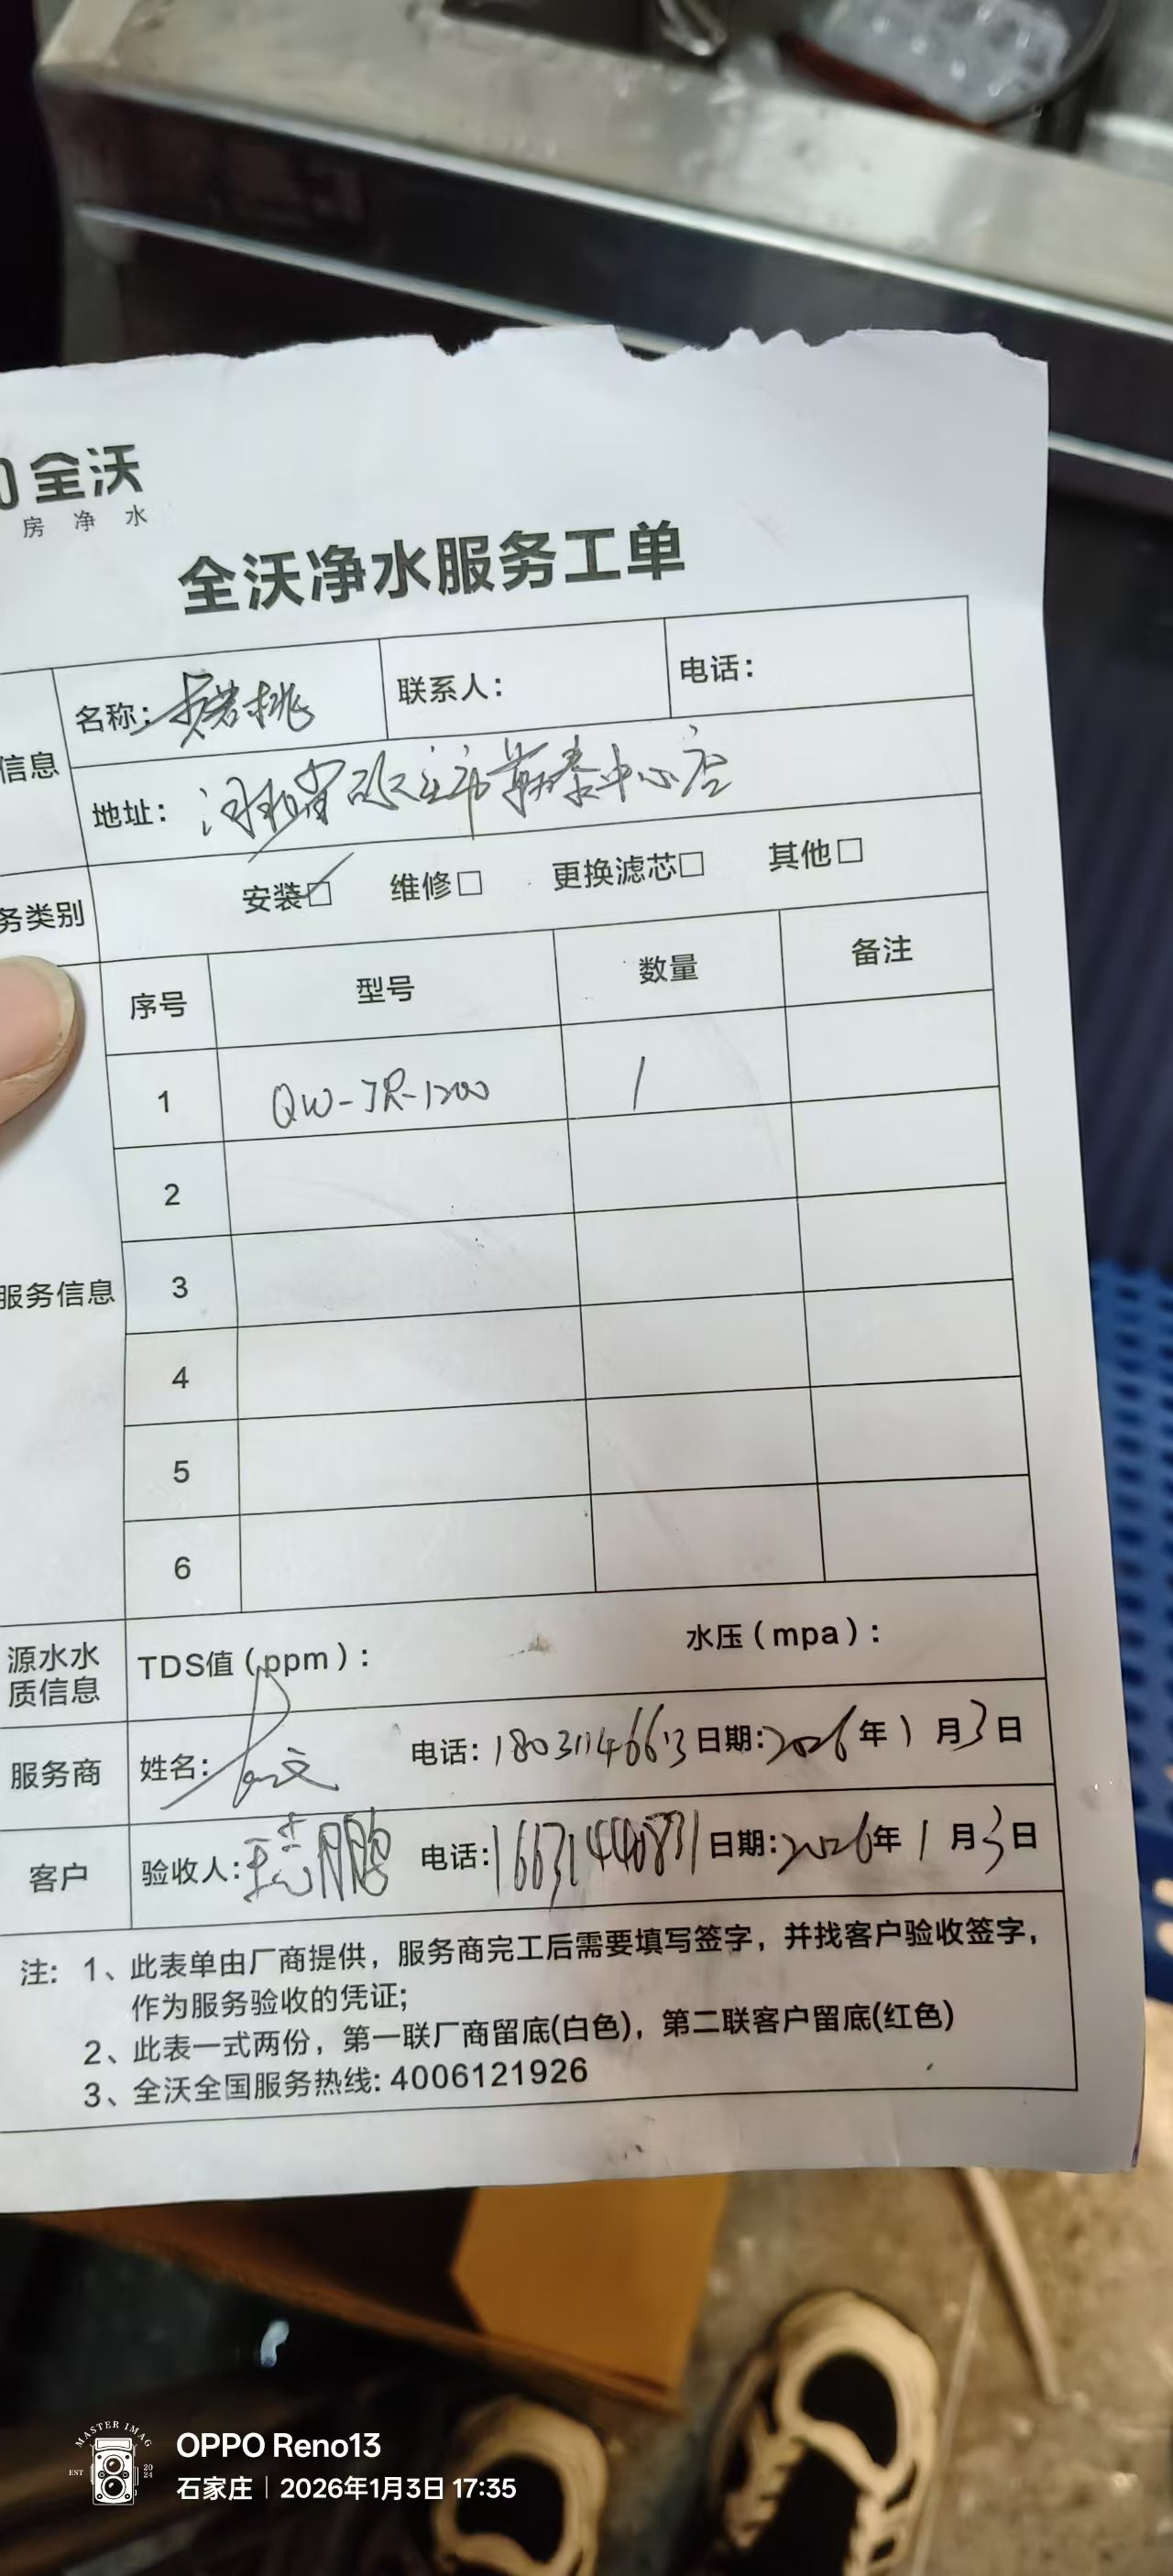 全沃
房净水
全沃净水服务工单
信息
名称：
联系人：
电话：
地址：
中心店
务类别
安装☑ 维修□ 更换滤芯□ 其他□
序号 型号 数量 备注
1 QW-JR-1200 1
2
服务信息
3
4
5
6
源水水质信息
TDS值（ppm）：
水压（mpa）：
服务商
姓名：
电话：18031146613 日期：2026年1月3日
客户
验收人： 电话：16631440831 日期：2026年1月3日
注：1、此表单由厂商提供，服务商完工后需要填写签字，并找客户验收签字，
作为服务验收的凭证；
2、此表一式两份，第一联厂商留底(白色)，第二联客户留底(红色)
3、全沃全国服务热线: 4006121926
MASTER IMAG
EST 2024
OPPO Reno13
石家庄｜2026年1月3日 17:35